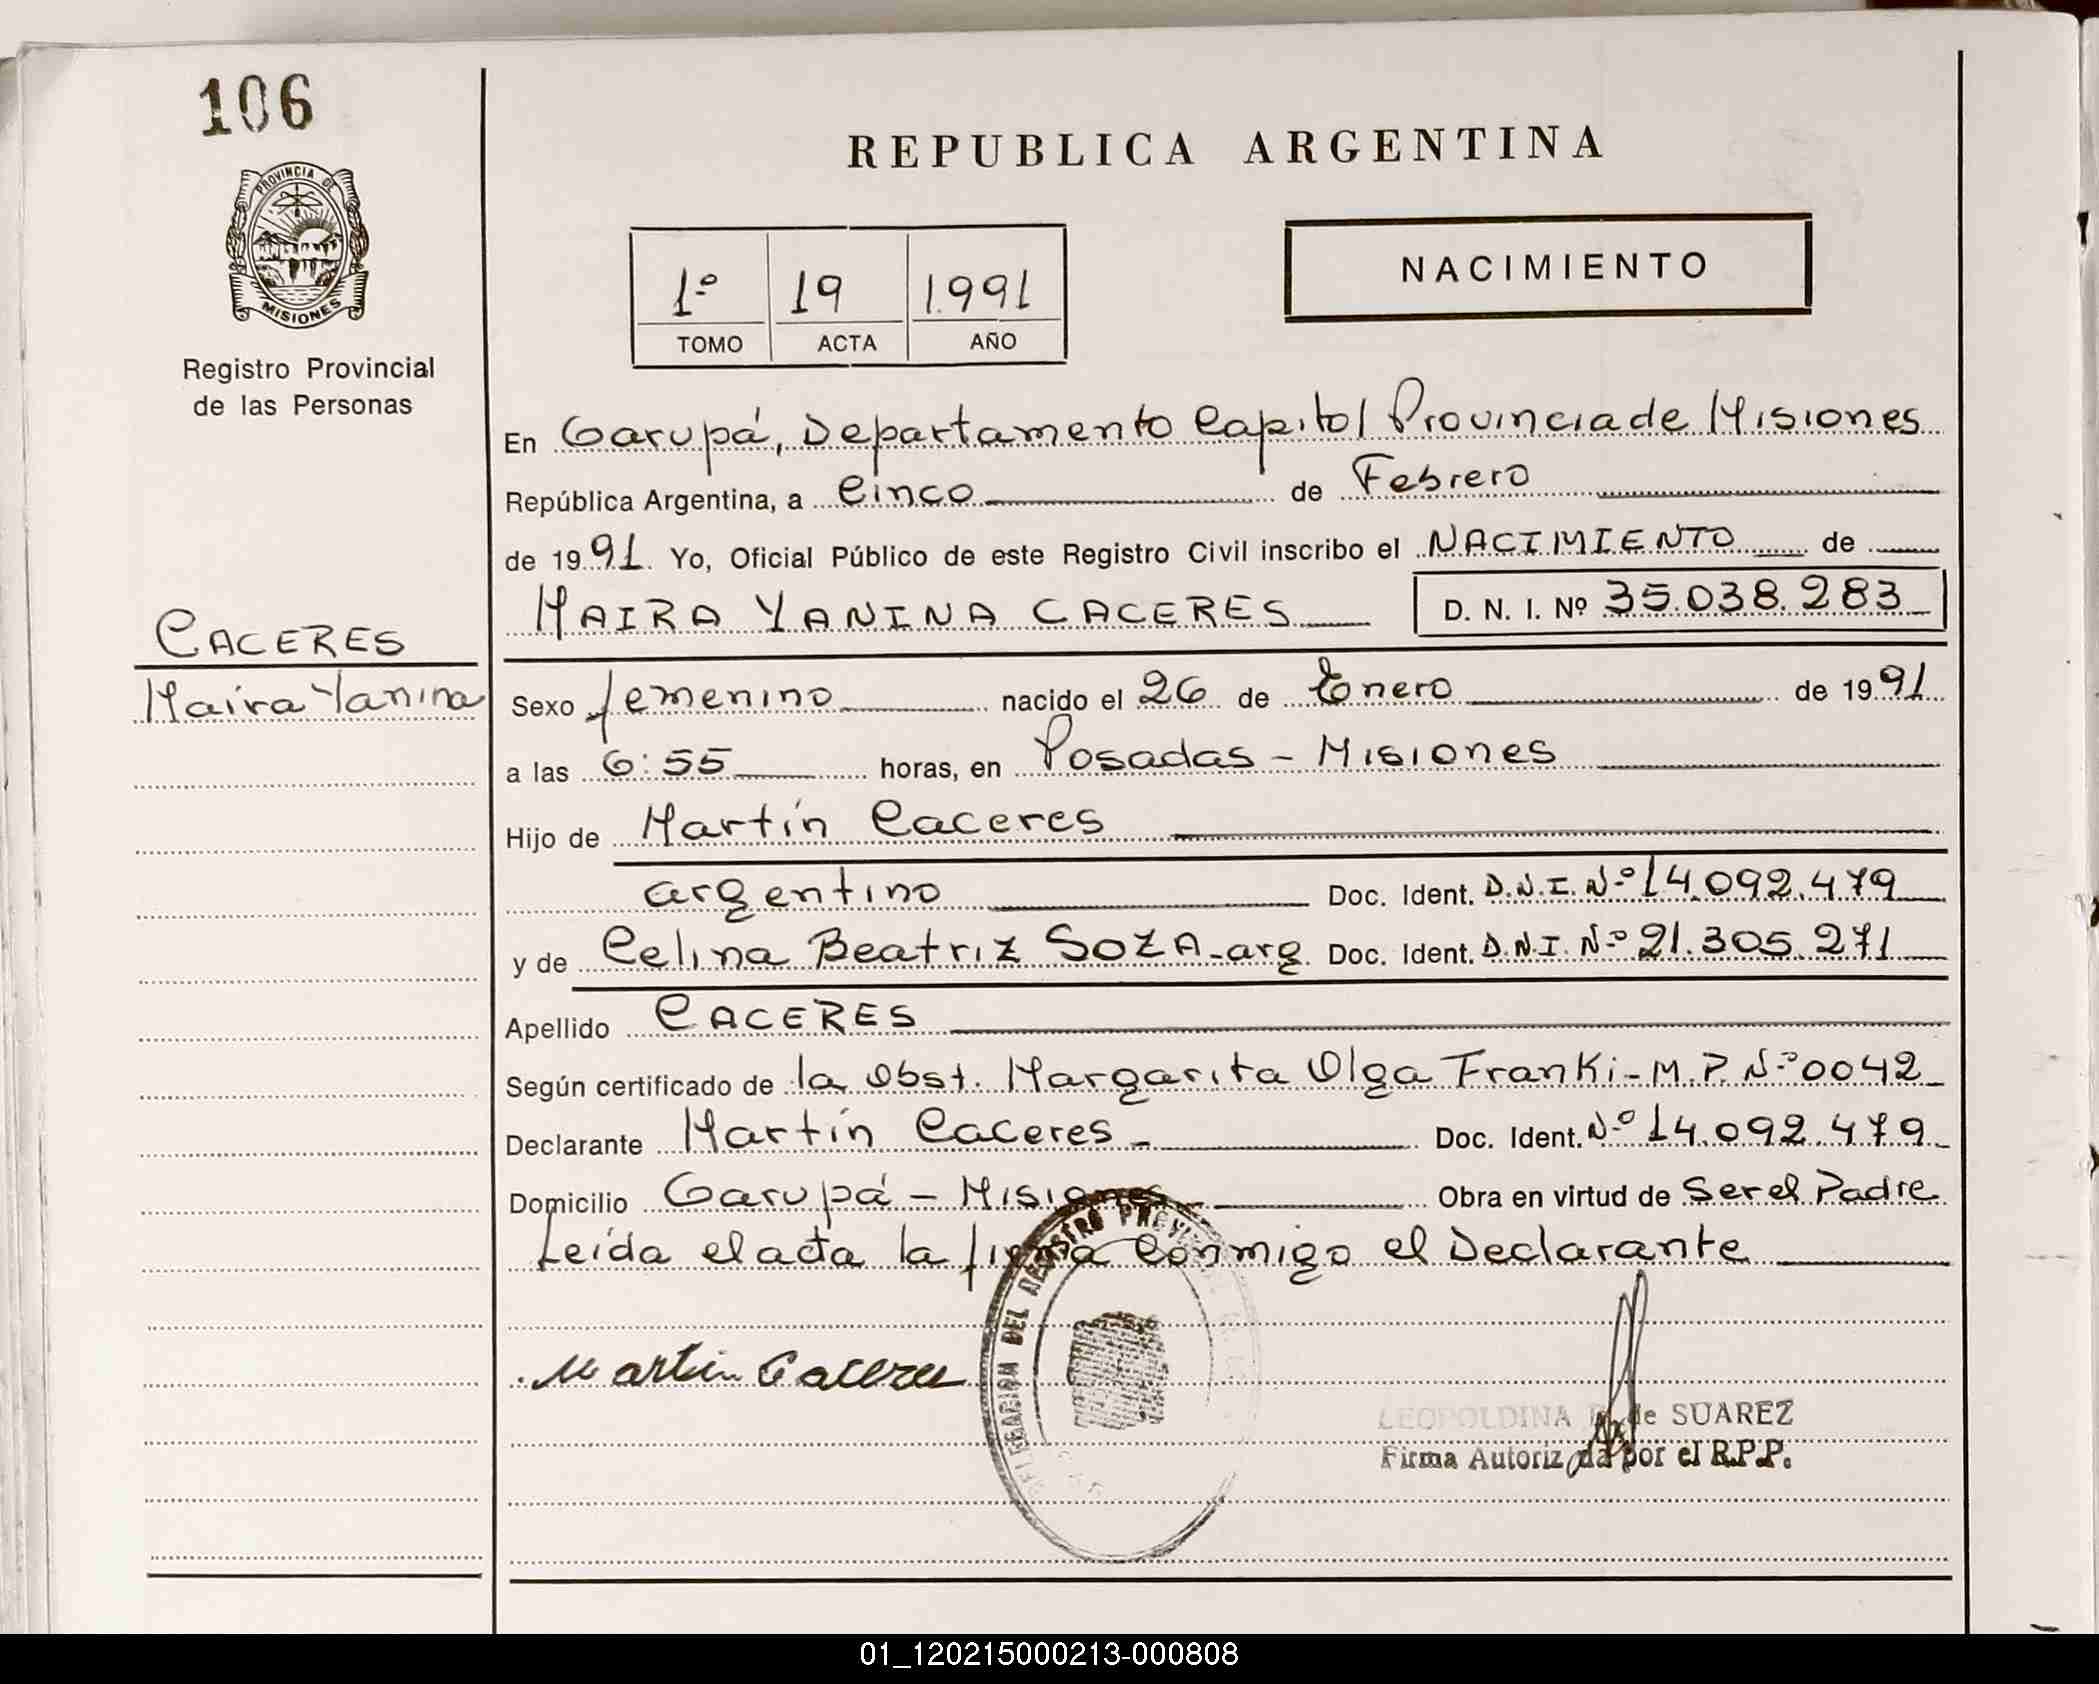 106
PROVINCIA DE
MISIONES
Registro Provincial
de las Personas
CACERES
Maira Yanina
REPUBLICA ARGENTINA
1º 19 1.991
TOMO ACTA AÑO
NACIMIENTO
En Garupá, Departamento Capital Provincia de Misiones
República Argentina, a Cinco de Febrero
de 1991. Yo, Oficial Público de este Registro Civil inscribo el NACIMIENTO de
MAIRA YANINA CACERES D. N. I. Nº 35.038.283
Sexo femenino nacido el 26 de Enero de 1991
a las 6:55 horas, en Posadas - Misiones
Hijo de Martín Caceres
argentino Doc. Ident. D.N.I. Nº 14.092.479
y de Celina Beatriz SOZA - arg. Doc. Ident. D.N.I. Nº 21.305.271
Apellido CACERES
Según certificado de la Obst. Margarita Olga Franki - M.P. Nº 0042
Declarante Martín Caceres - Doc. Ident. Nº 14.092.479
Domicilio Garupá - Misiones Obra en virtud de Ser el Padre
Leída el acta la firma Conmigo el Declarante
DELEGACION DEL REGISTRO
Martin Caceres
LEOPOLDINA de SUAREZ
Firma Autorizada por el R.P.P.
01_120215000213-000808